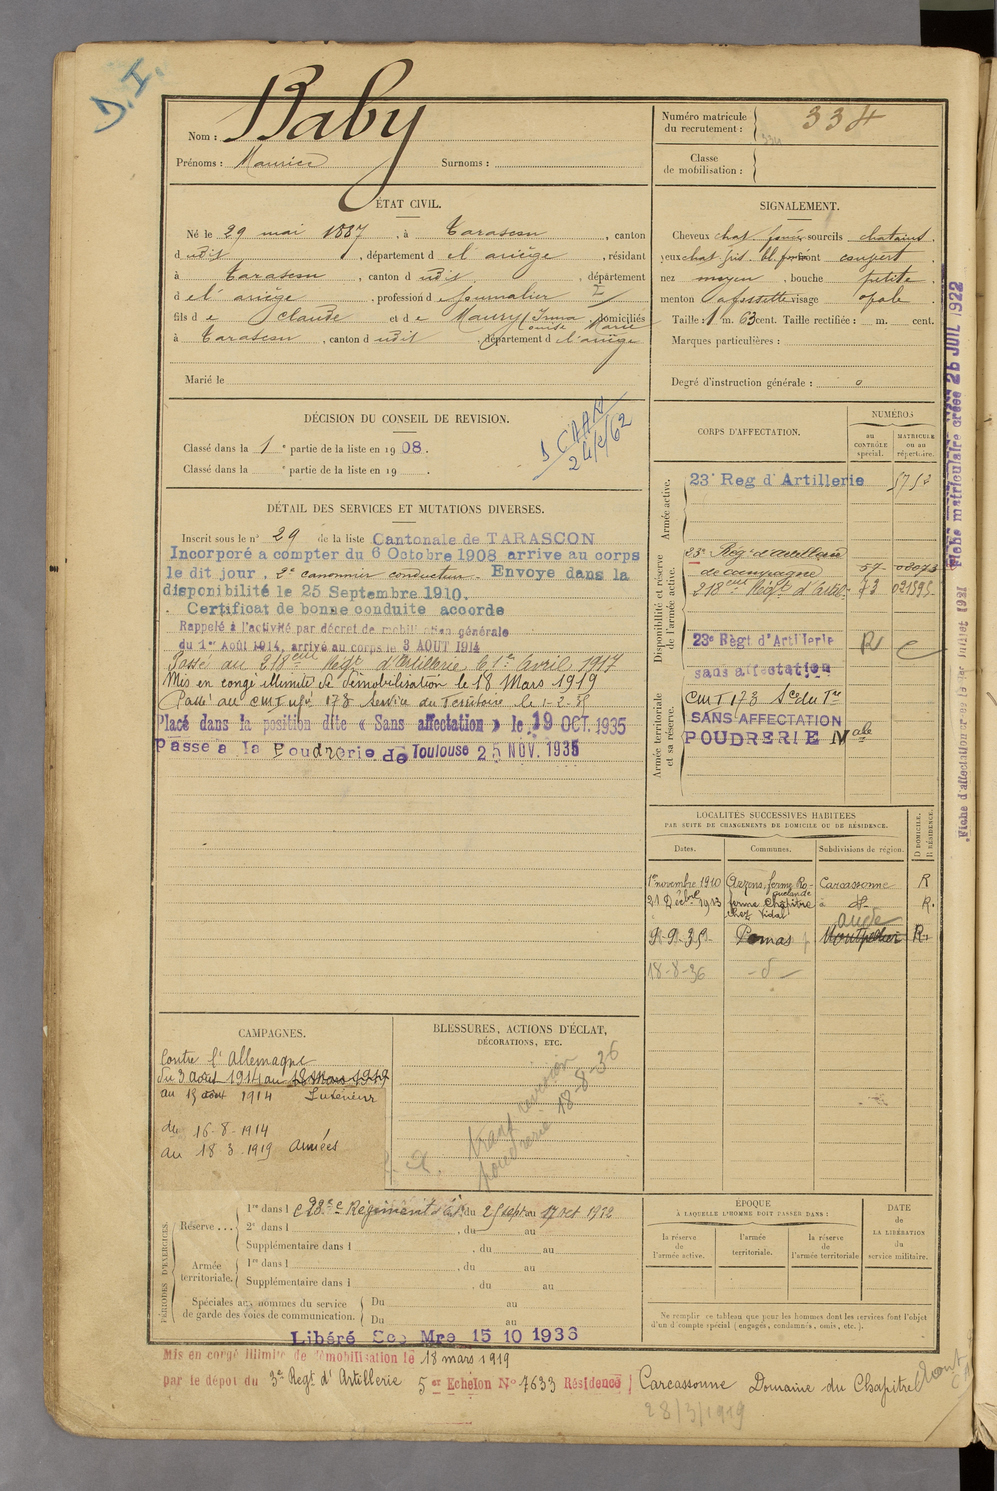 J. I.
Nom : Baby
Prénoms : Maurice Surnoms :
Numéro matricule
du recrutement : 334
Classe
de mobilisation :
ÉTAT CIVIL.
Né le 29 mai 1887, à Tarascon, canton
d udit, département d e l'ariège, résidant
à Tarascon, canton d udit, département
d e l'ariège, profession d e journalier
fils d e Claude et d e Maury Irma, domiciliés
Louise Marie
à Tarascon, canton d udit, département d e l'ariège
Marié le
SIGNALEMENT.
Cheveux chat. foncés sourcils chatains.
yeux chat. gris. bl. foncé front couvert
nez moyen, bouche petite
menton à fossette visage ovale.
Taille : 1 m. 63 cent. Taille rectifiée : m. cent.
Marques particulières :
Degré d'instruction générale : 0
DÉCISION DU CONSEIL DE REVISION.
Classé dans la 1 e partie de la liste en 1908.
Classé dans la e partie de la liste en 19 .
24/2/62
DÉTAIL DES SERVICES ET MUTATIONS DIVERSES.
Inscrit sous le n° 29 de la liste Cantonale de TARASCON
Incorporé a compter du 6 Octobre 1908 arrive au corps
le dit jour. 2e canonnier conducteur. Envoye dans la
disponibilité le 25 Septembre 1910.
Certificat de bonne conduite accorde
Rappelé à l'activité par décret de mobilisation générale
du 1er Août 1914, arrivé au corps le 3 AOUT 1914
Passé au 218eme Régt d'Artillerie le 1er Avril 1917
Mis en congé illimité de démobilisation le 18 Mars 1919
Passé au CM I n° 173 Service du Territoire le 1-2-
Placé dans la position dite « Sans affectation » le 19 OCT. 1935
Passe a la Poudrerie de Toulouse 25 NOV. 1935
CORPS D'AFFECTATION.
NUMÉROS
au
CONTRÔLE
spécial.
MATRICULE
ou au
répertoire.
Armée active.
23e Reg d'Artillerie 5752
Disponibilité et réserve
de l'armée active.
23e Régt d'artillerie
de campagne 57- 02073
218eme Régt d'Artil. 73 021595
23e Règt d'Artillerie
sans affectation
Armée territoriale
et sa réserve.
CM I 173 Sce du Tre
SANS AFFECTATION
POUDRERIE Nale
LOCALITÉS SUCCESSIVES HABITÉES
PAR SUITE DE CHANGEMENTS DE DOMICILE OU DE RÉSIDENCE.
Dates. Communes. Subdivisions de région. D DOMICILE. R RÉSIDENCE.
1er novembre 1910 Arzens, ferme Ro- Carcassonne R
21 Décbre 1913 ferme Chapitre à - d° - R.
chez Vidal
Aude
9-9-35 Pomas Montpellier R.
18-8-36 - d° -
CAMPAGNES.
Contre l'Allemagne
du 3 août 1914 au 18 Mars 1919
au 15 août 1914 Intérieur
du 16-8-1914
au 18 3 1919 Armées
BLESSURES, ACTIONS D'ÉCLAT,
DÉCORATIONS, ETC.
poudrerie 18-8-36
PÉRIODES D'EXERCICES.
Réserve ...
1re dans l e 23e Régiment d'Art du 25 sept au 17 oct 1912
2e dans l , du au
Supplémentaire dans l , du au
Armée
territoriale.
1re dans l , du au
Supplémentaire dans l , du au
Spéciales aux hommes du service
de garde des voies de communication.
Du au
Du au
ÉPOQUE
À LAQUELLE L'HOMME DOIT PASSER DANS :
la réserve
de
l'armée active.
l'armée
territoriale.
la réserve
de
l'armée territoriale
DATE
de
LA LIBÉRATION
du
service militaire.
Ne remplir ce tableau que pour les hommes dont les services font l'objet
d'un décompte spécial (engagés, condamnés, omis, etc.).
Libéré Sce Mre 15 10 1936
Mis en congé illimité de démobilisation le 18 mars 1919
par le dépot du 3e Régt d'Artillerie 5 er Echelon N° 7633 Résidence Carcassonne Domaine du Chapitre
28/3/1919
Fiche matriculaire créée 26 JUIL 1922